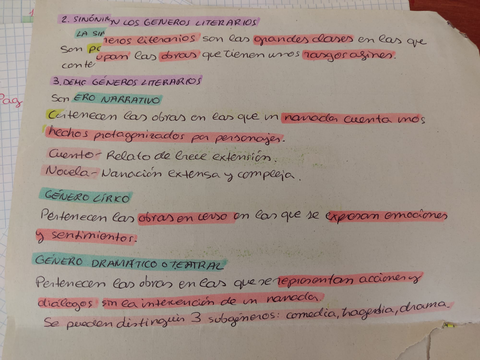 2. SINÓNI N LOS GÉNEROS LITERARIOS
LA SI eros literarios son las grandes clases en las que
Son upan las obras que tienen unos rasgos afines.
conte
3. DEMO GÉNEROS LITERARIOS
Son ERO NARRATIVO
ertenecen las obras en las que un narrador cuenta unos
hechos protagonizados por personajes.
Cuento- Relato de breve extensión.
Novela- Narración extensa y compleja.
GÉNERO LÍRICO
Pertenecen las obras en verso en las que se expresan emociones
y sentimientos.
GÉNERO DRAMÁTICO O TEATRAL
Pertenecen las obras en las que se representan acciones y
diálogos sin la intervención de un narrador
Se pueden distinguir 3 subgéneros: comedia, tragedia, drama.
Pag